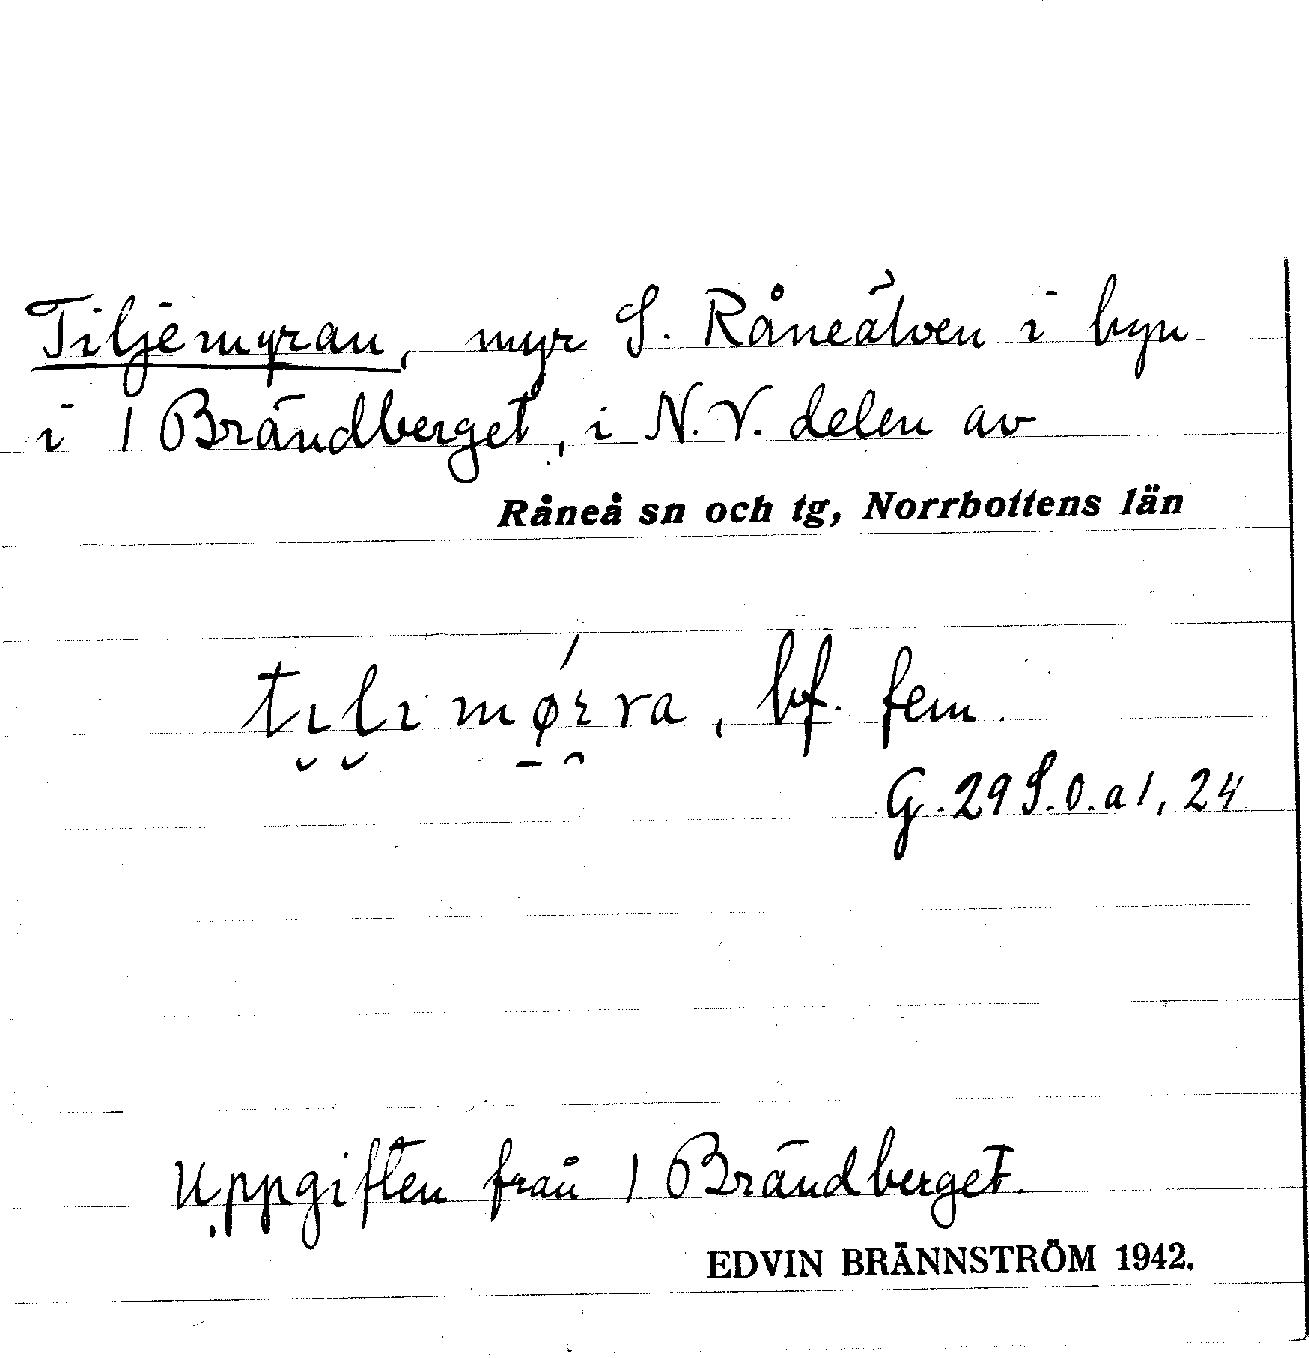 Tiljemyran, myr S. Råneälven i byn
i 1 Brändberget, i N.V. delen av
Råneå sn och tg, Norrbottens län
tılımǿɛra, bf. fem.
G. 29 S.O. a 1, 24
Uppgiften från 1 Brändberget.
EDVIN BRÄNNSTRÖM 1942.